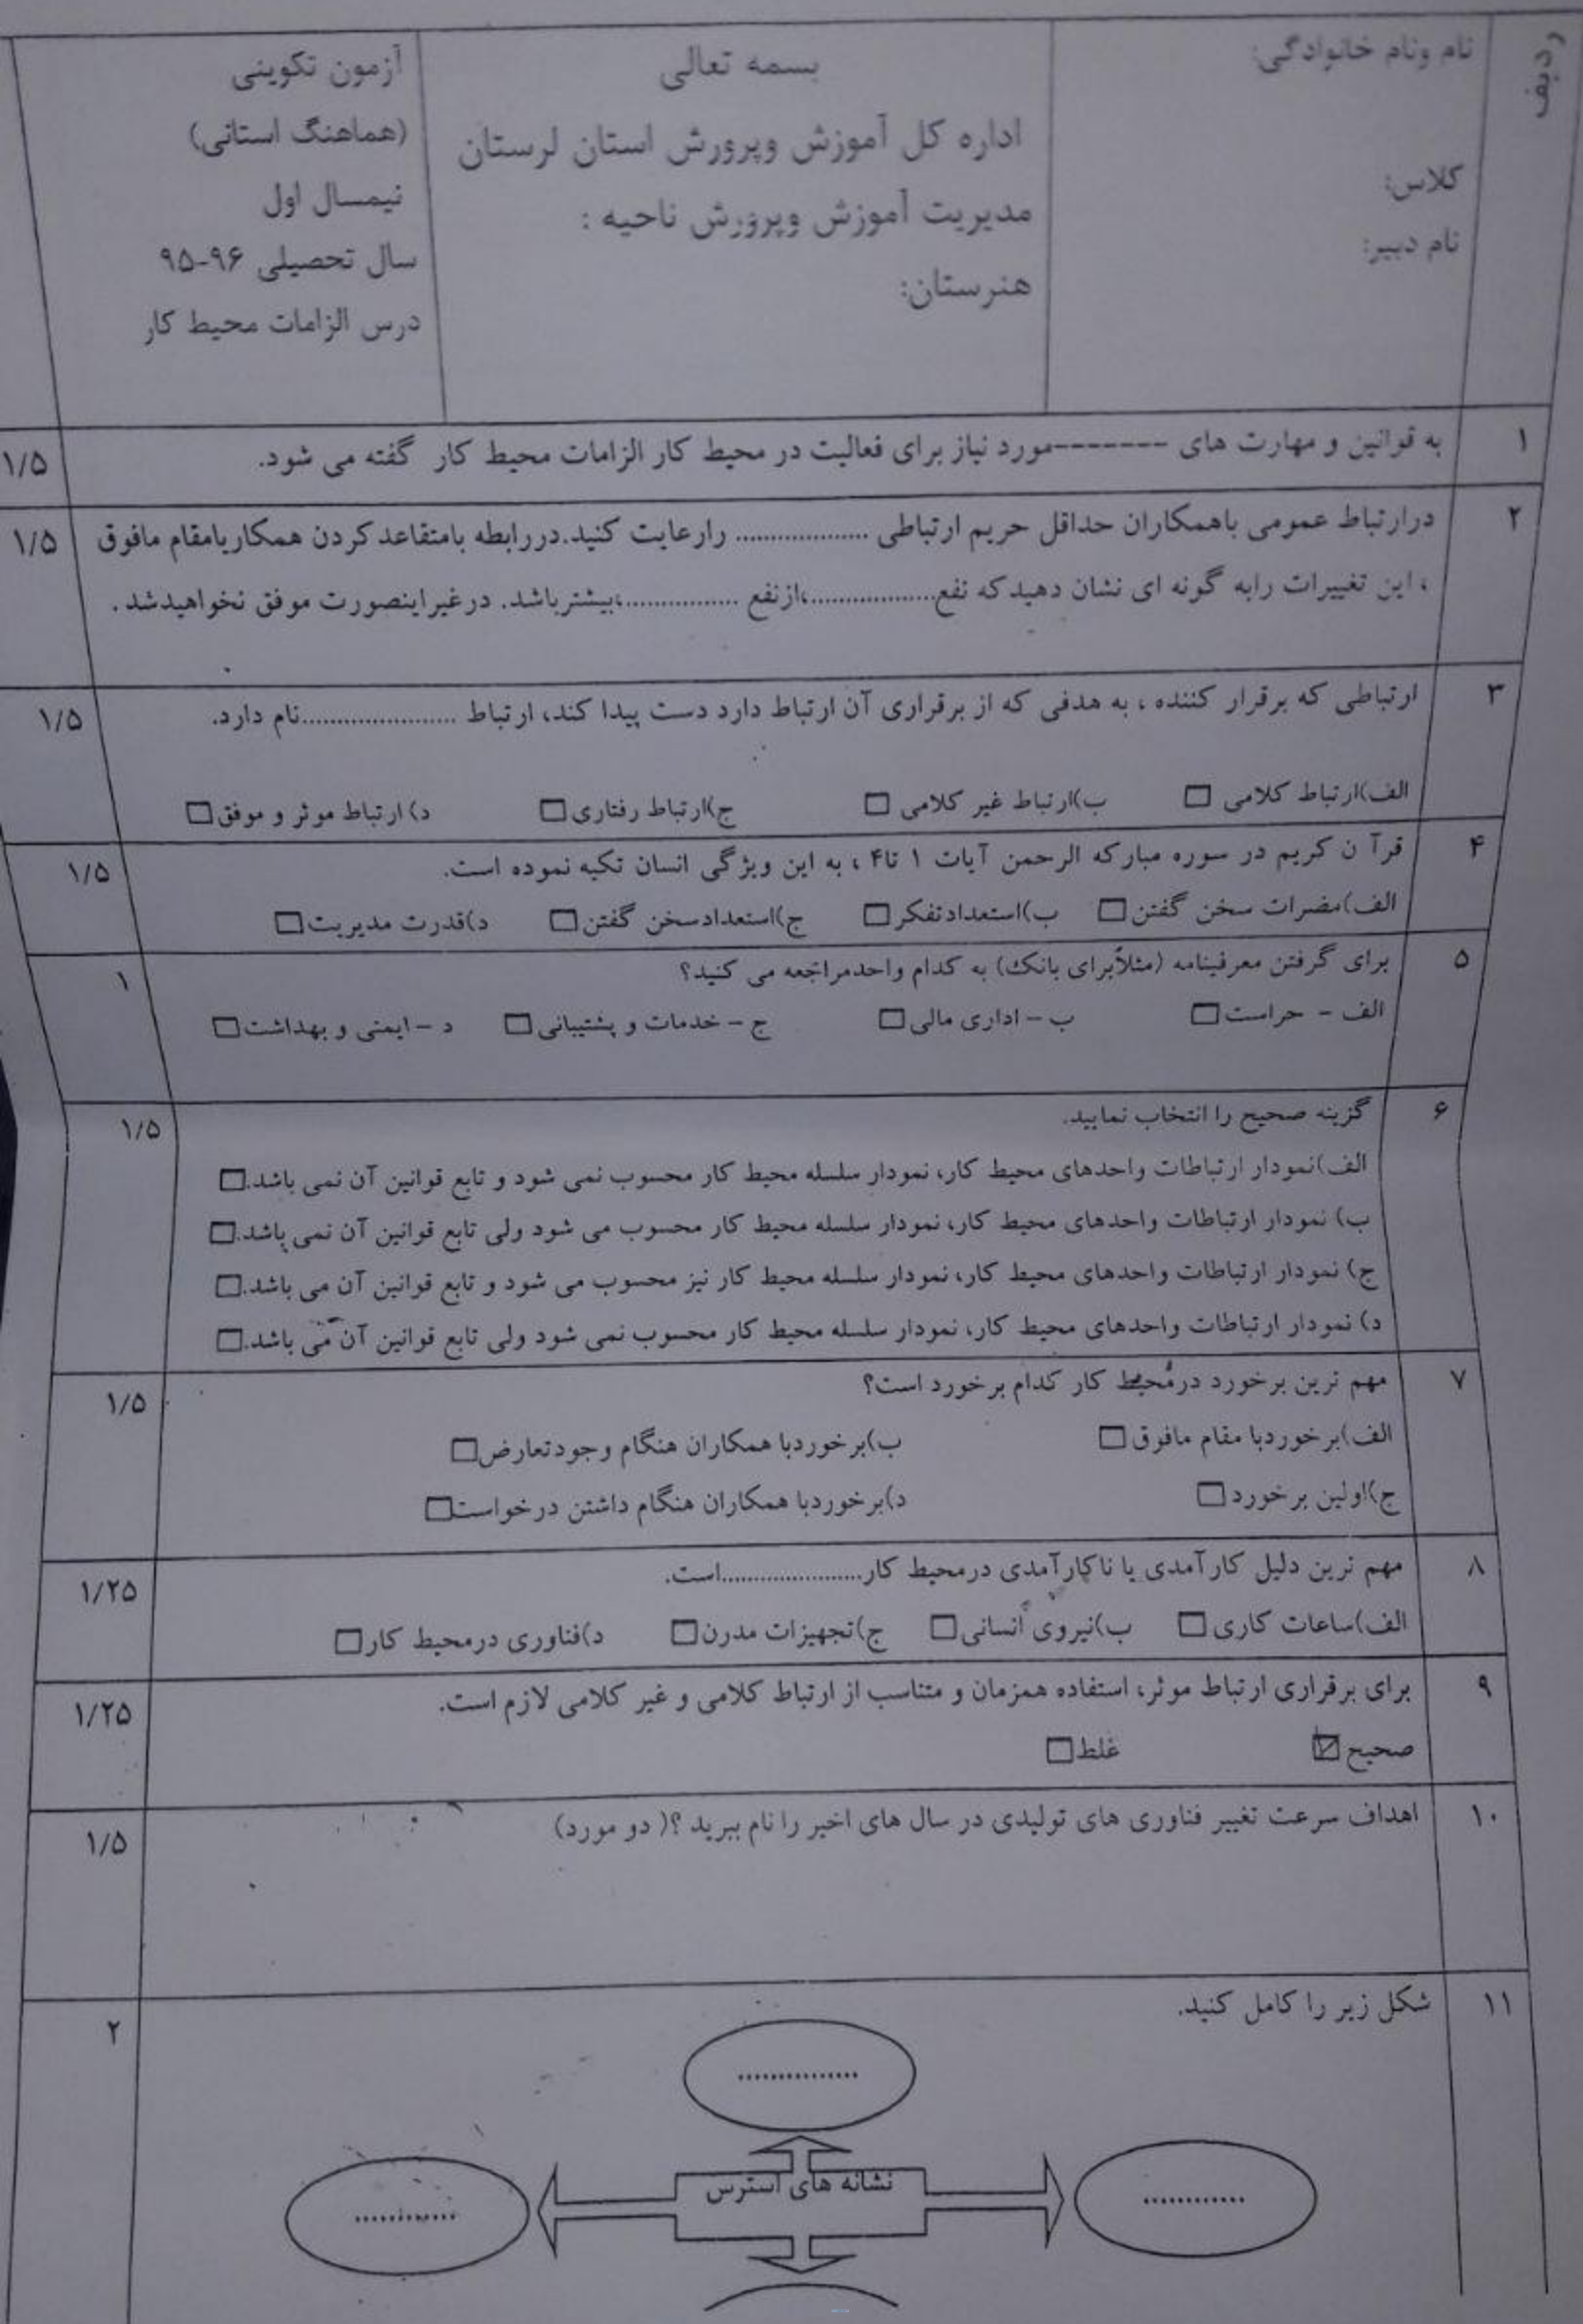 ردیف
نام ونام خانوادگی:
کلاس:
نام دبیر:
بسمه تعالی
اداره کل آموزش وپرورش استان لرستان
مدیریت آموزش وپرورش ناحیه :
هنرستان:
آزمون تکوینی
(هماهنگ استانی)
نیمسال اول
سال تحصیلی ۹۶-۹۵
درس الزامات محیط کار
۱ به قوانین و مهارت های -------مورد نیاز برای فعالیت در محیط کار الزامات محیط کار گفته می شود. ۱/۵
۲ درارتباط عمومی باهمکاران حداقل حریم ارتباطی .................. رارعایت کنید.دررابطه بامتقاعدکردن همکاریامقام مافوق ۱/۵
، این تغییرات رابه گونه ای نشان دهیدکه نفع.................،ازنفع ................،بیشترباشد. درغیراینصورت موفق نخواهیدشد .
۳ ارتباطی که برقرار کننده ، به هدفی که از برقراری آن ارتباط دارد دست پیدا کند، ارتباط ......................نام دارد. ۱/۵
الف)ارتباط کلامی □ ب)ارتباط غیر کلامی □ ج)ارتباط رفتاری□ د) ارتباط موثر و موفق□
۴ قرآ ن کریم در سوره مبارکه الرحمن آیات ۱ تا۴ ، به این ویژگی انسان تکیه نموده است. ۱/۵
الف)مضرات سخن گفتن□ ب)استعدادتفکر□ ج)استعدادسخن گفتن□ د)قدرت مدیریت□
۵ برای گرفتن معرفینامه (مثلاًبرای بانک) به کدام واحدمراجعه می کنید؟ ۱
الف - حراست□ ب - اداری مالی□ ج - خدمات و پشتیبانی□ د - ایمنی و بهداشت□
۶ گزینه صحیح را انتخاب نمایید. ۱/۵
الف)نمودار ارتباطات واحدهای محیط کار، نمودار سلسله محیط کار محسوب نمی شود و تابع قوانین آن نمی باشد.□
ب) نمودار ارتباطات واحدهای محیط کار، نمودار سلسله محیط کار محسوب می شود ولی تابع قوانین آن نمی باشد.□
ج) نمودار ارتباطات واحدهای محیط کار، نمودار سلسله محیط کار نیز محسوب می شود و تابع قوانین آن می باشد.□
د) نمودار ارتباطات واحدهای محیط کار، نمودار سلسله محیط کار محسوب نمی شود ولی تابع قوانین آن می باشد.□
۷ مهم ترین برخورد درمحیط کار کدام برخورد است؟ ۱/۵
الف)برخوردبا مقام مافوق□ ب)برخوردبا همکاران هنگام وجودتعارض□
ج)اولین برخورد□ د)برخوردبا همکاران هنگام داشتن درخواست□
۸ مهم ترین دلیل کارآمدی یا ناکارآمدی درمحیط کار......................است. ۱/۲۵
الف)ساعات کاری□ ب)نیروی انسانی□ ج)تجهیزات مدرن□ د)فناوری درمحیط کار□
۹ برای برقراری ارتباط موثر، استفاده همزمان و متناسب از ارتباط کلامی و غیر کلامی لازم است. ۱/۲۵
صحیح☑ غلط□
۱۰ اهداف سرعت تغییر فناوری های تولیدی در سال های اخیر را نام ببرید ؟( دو مورد) ۱/۵
۱۱ شکل زیر را کامل کنید. ۲
...............
............ نشانه های استرس ............